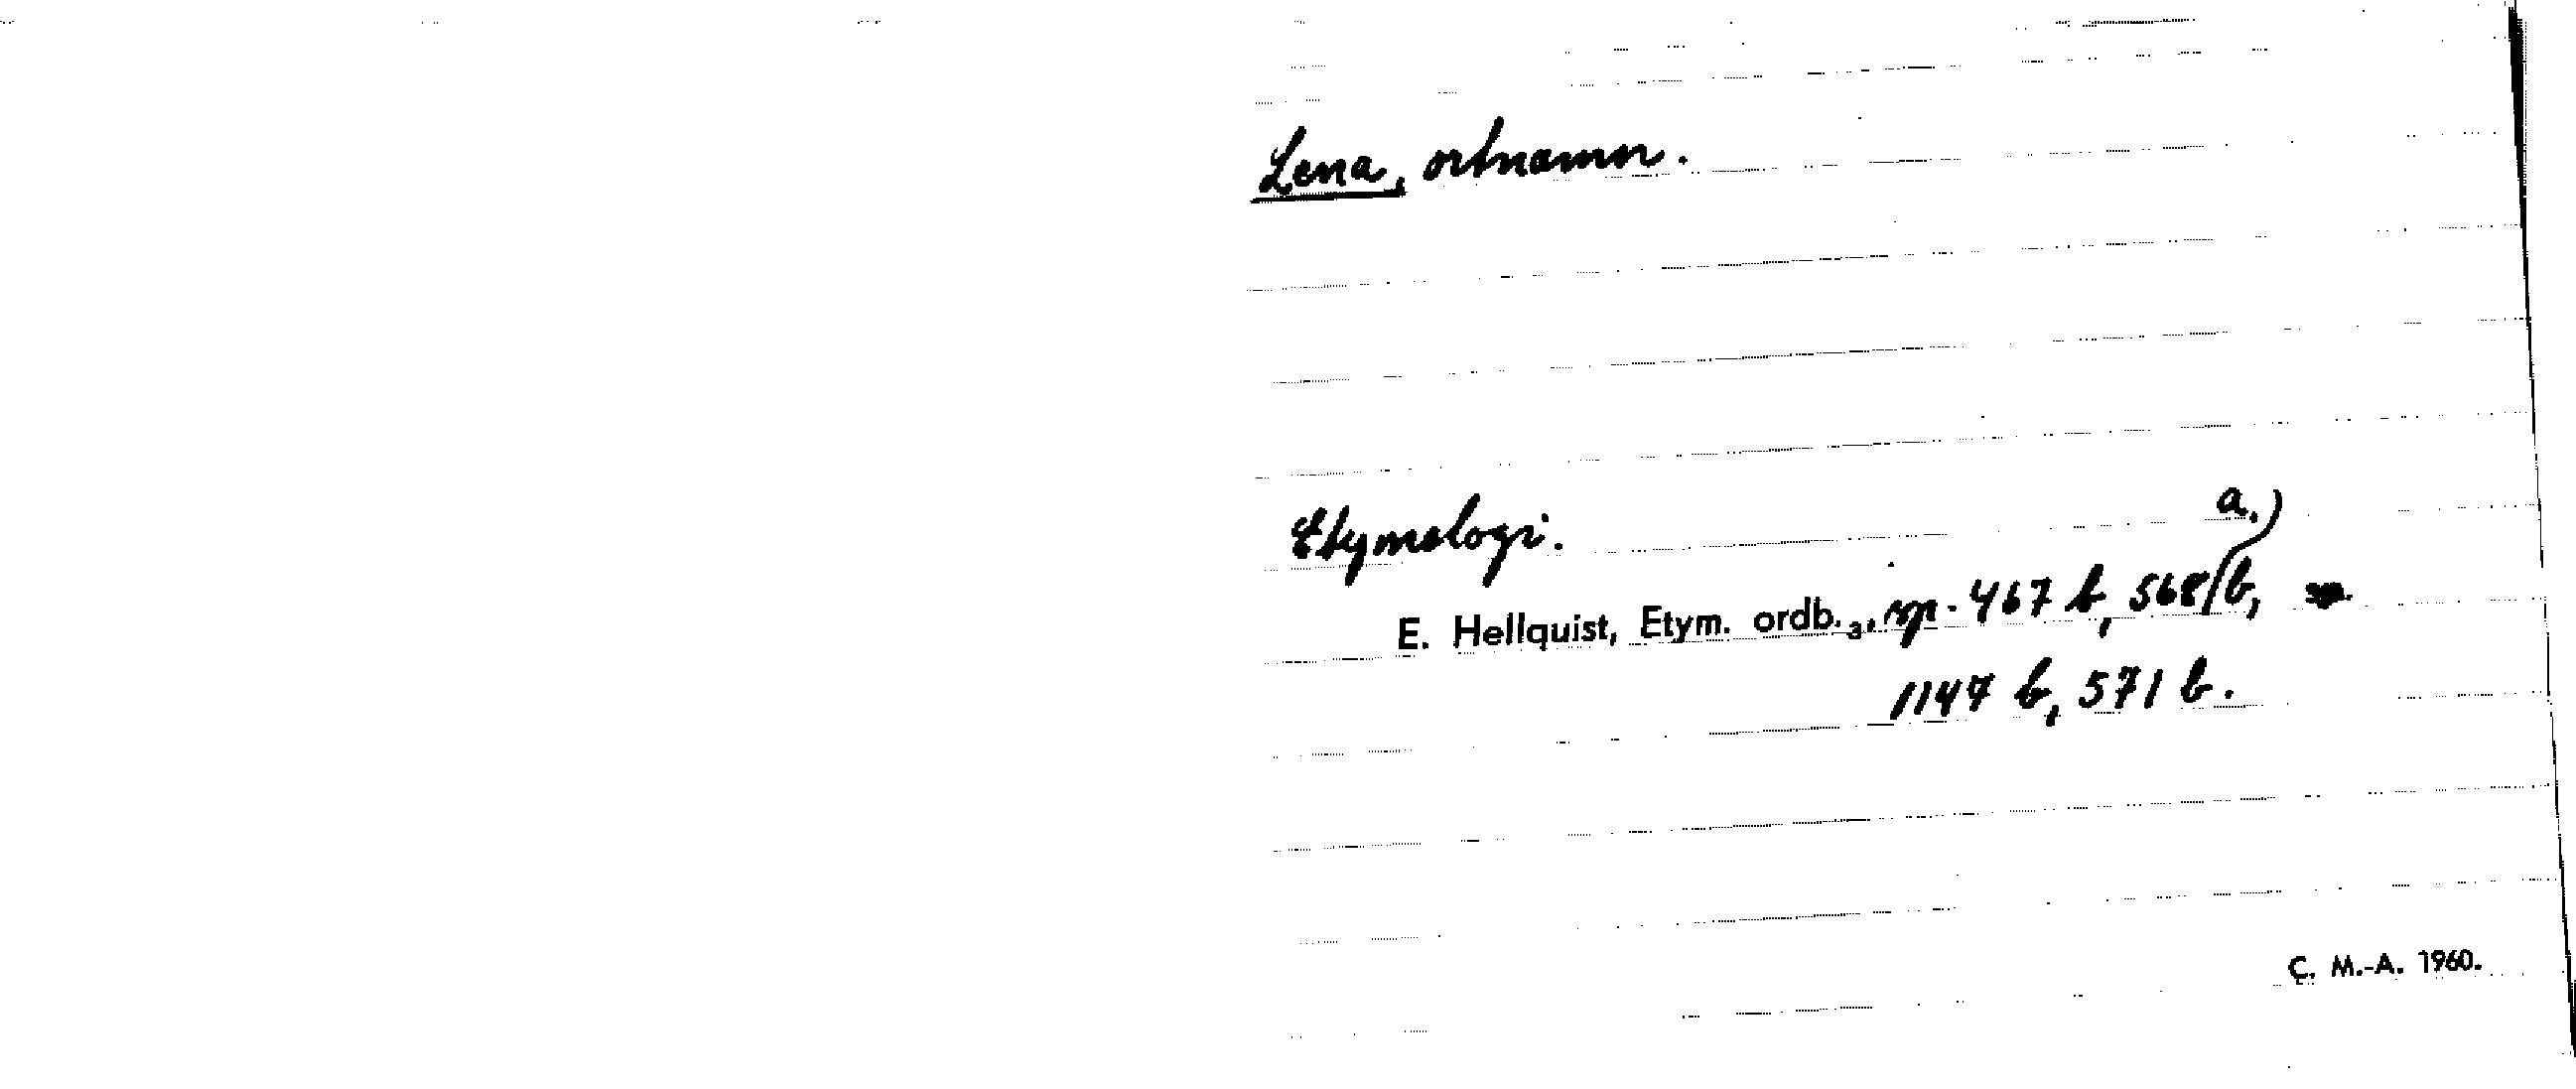 Lena, ortnamn.
Etymologi.
E. Hellquist, Etym. ordb.₃, sp. 467 b, 568/a,) b,
1147 b, 571 b.
C. M.-A. 1960.